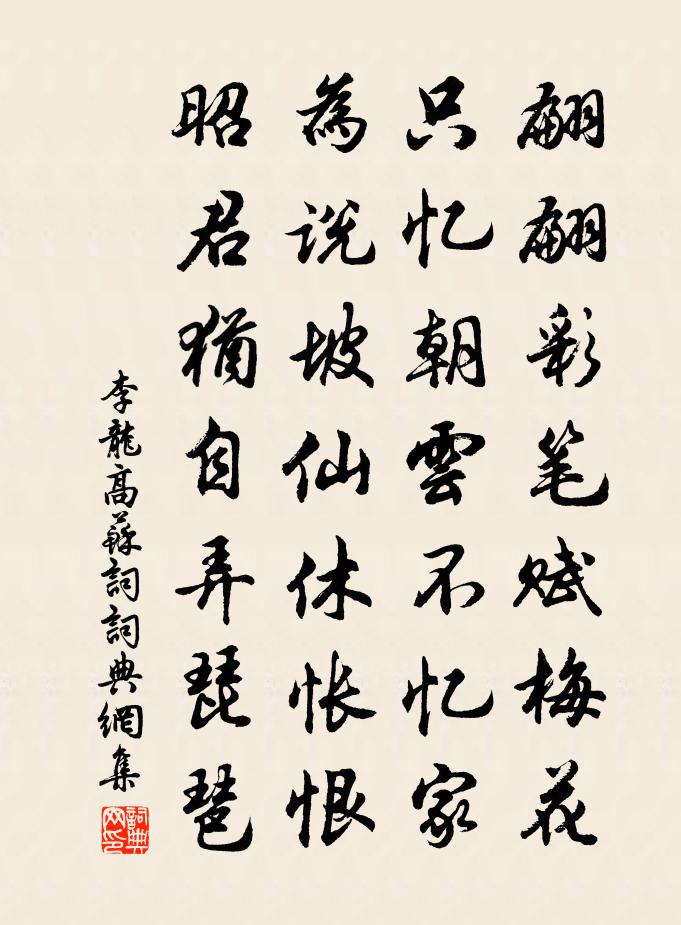 翩翩彩笔赋梅花
只忆朝雲不忆家
為说坡仙休怅恨
昭君猶自弄琵琶
李龍高蘇詞詞典網集
詞典
网印